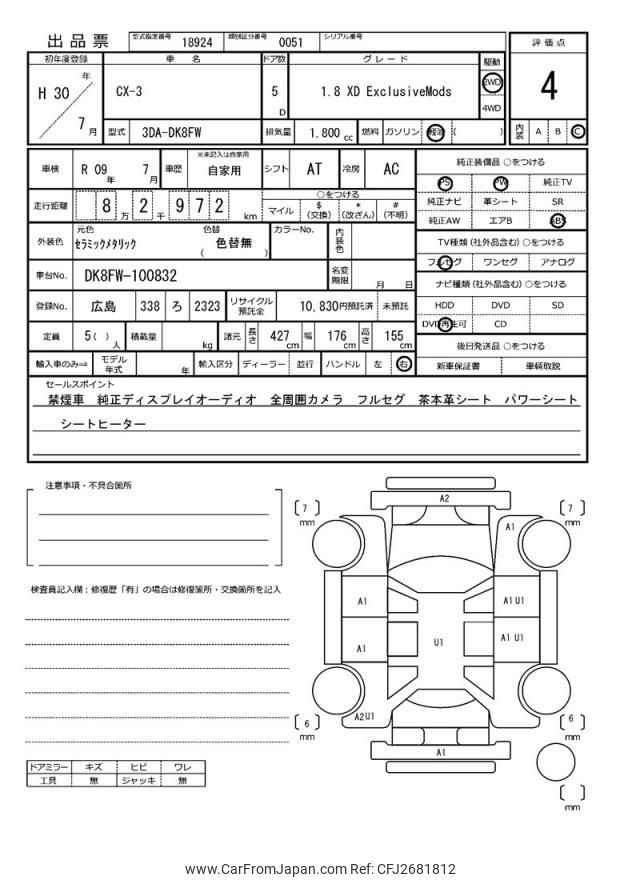 出品票 型式指定番号 18924 類別区分番号 0051 シリアル番号
評価点
4
内装 A B C
初年度登録 車名 ドア数 グレード 駆動
H 30 年 7 月 CX-3 5 D 1.8 XD ExclusiveMods 2WD
4WD
型式 3DA-DK8FW 排気量 1,800 cc 燃料 ガソリン 軽油 ( )
車検 R 09 年 7 月 車歴 ※未記入は自家用 自家用 シフト AT 冷房 AC
走行距離 8 万 2 千 9 7 2 km ○をつける
マイル $ (交換) * (改ざん) # (不明)
外装色 元色 セラミックメタリック 色替 ( 色替無 ) カラーNo. 内装色
車台No. DK8FW-100832 名変期限 月 日
登録No. 広島 338 ろ 2323 リサイクル預託金 10,830円預託済 未預託
定員 5 ( ) 人 積載量 kg 諸元 長さ 427 cm 幅 176 cm 高さ 155 cm
輸入車のみ⇒ モデル年式 年 輸入区分 ディーラー 並行 ハンドル 左 右
純正装備品 ○をつける
PS PW 純正TV
純正ナビ 革シート SR
純正AW エアB ABS
TV種類 (社外品含む) ○をつける
フルセグ ワンセグ アナログ
ナビ種類 (社外品含む) ○をつける
HDD DVD SD
DVD再生可 CD
後日発送品 ○をつける
新車保証書 車輌取説
セールスポイント
禁煙車 純正ディスプレイオーディオ 全周囲カメラ フルセグ 茶本革シート パワーシート
シートヒーター
注意事項・不具合箇所
検査員記入欄：修復歴「有」の場合は修復箇所・交換箇所を記入
ドアミラー キズ ヒビ ワレ
工具 無 ジャッキ 無
A2
[ 7 ] mm
[ 7 ] mm
A1
A1
A1 U1
U1
A1
A1 U1
A2 U1
[ 6 ] mm
[ 6 ] mm
A1
[ ] mm
www.CarFromJapan.com Ref: CFJ2681812